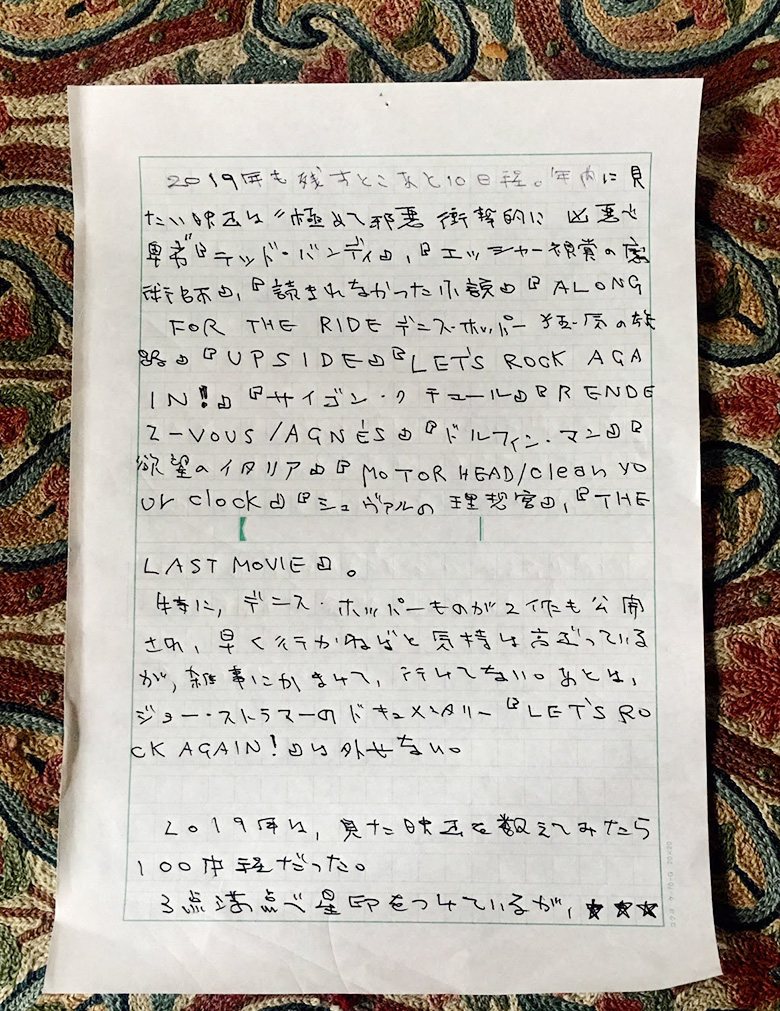 2019年も残すとこあと10日程。年内に見
たい映画は〝極めて邪悪 衝撃的に 凶悪で
卑劣『テッド・バンディ』,『エッシャー視覚の魔
術師』,『読まれなかった小説』『ALONG
FOR THE RIDE デニス・ホッパー 狂気の旅
路』『UPSIDE』『LET'S ROCK AGA
IN!』『サイゴン・クチュール』『RENDE
Z-VOUS/AGNÈS』『ドルフィン・マン』『
欲望のイタリア』『MOTOR HEAD/clean yo
ur clock』『シュヴァルの理想宮』,『THE
LAST MOVIE』。
特に,デニス・ホッパーものが2作も公開
され,早く行かねばと気持は高ぶっている
が,雑事にかまけて,行けてない。あとは,
ジョー・ストラマーのドキュメンタリー『LET'S RO
CK AGAIN!』は外せない。
2019年は,見た映画を数えてみたら
100本程だった。
3点満点で星印をつけているが,★★★